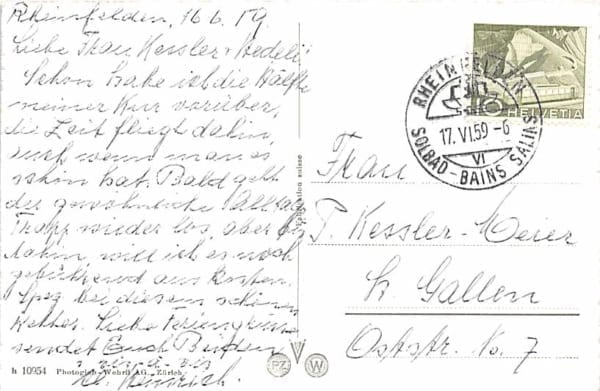 Rheinfelden, 16.6.59.
Liebe Frau Kessler + Bedeli
Schon habe ich die Hälfte
meiner Kur vorüber,
die Zeit fliegt dahin,
auch wenn man es
schön hat. Bald geht
der gewöhnliche Alltags
Trapp wieder los, aber bis
dahin, will ich es noch
gebührend aus kosten.
bei diesem schönen
Wetter. Liebe Feriengrüsse
sendet Euch Beiden
vis-à-vis
Heinrich.
h 10954 Photoglob-Wehrli AG., Zürich.
PZ
W
Fabrication suisse
HELVETIA
RHEINFELDEN
17.VI.59-6
VI
SOLBAD-BAINS SALINS
Frau
P. Kessler-Meier
St. Gallen
Oststr. No. 7